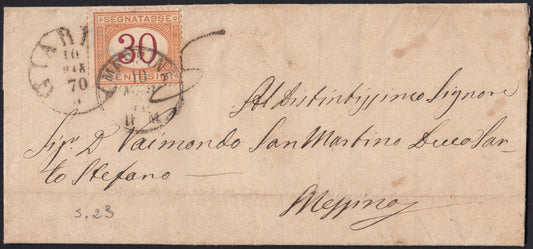 SEGNATASSE
GIARRE
10
70
30
CENTESIMI
MESSINA
10
Al Distintissimo Signore
Sigr. D. Raimondo San Martino Duca San-
to Stefano —
Messina
S. 23